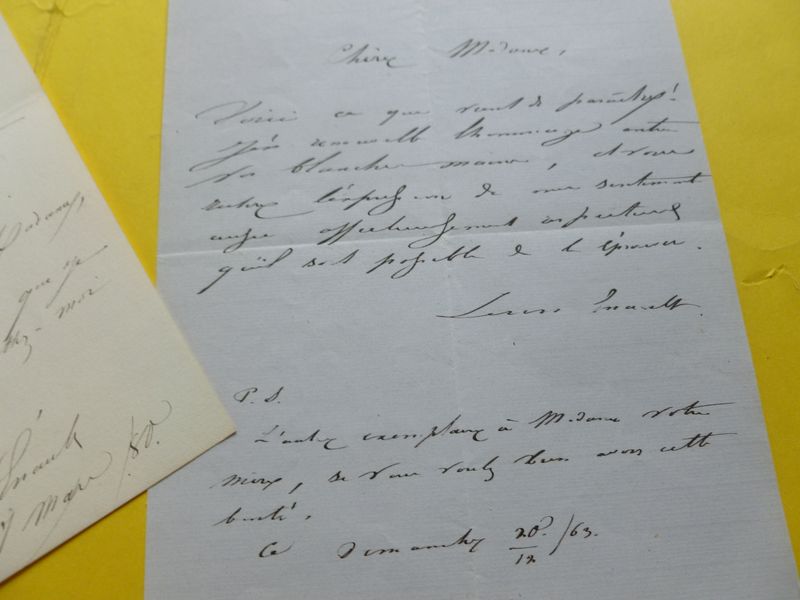 Chère Madame,
Voici ce que vient de paraître!
J'en renouvelle l'hommage entre
vos blanches mains, et vous
l'expression de mes sentiments
aussi affectueusement respectueux
qu'il soit possible de l'éprouver.
Louis Enault.
P. S.
L'autre exemplaire à Madame votre
mère, si vous voulez bien avoir cette
bonté.
Ce Dimanche 20/12/63.
Madame,
que je
chez-moi
Énault
mars /80.